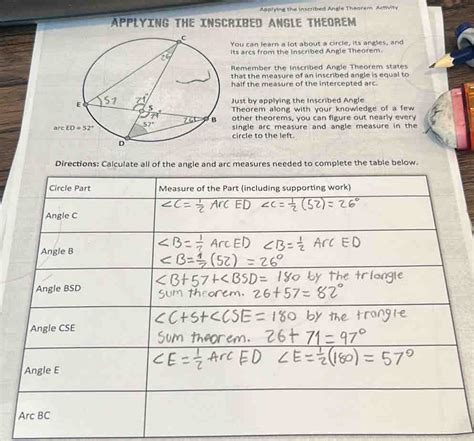 Applying the Inscribed Angle Theorem Activity
APPLYING THE INSCRIBED ANGLE THEOREM
You can learn a lot about a circle, its angles, and
its arcs from the Inscribed Angle Theorem.
Remember the Inscribed Angle Theorem states
that the measure of an inscribed angle is equal to
half the measure of the intercepted arc.
Just by applying the Inscribed Angle
Theorem along with your knowledge of a few
other theorems, you can figure out nearly every
single arc measure and angle measure in the
circle to the left.
C
26
E
57
S
57°
B
D
arc ED = 52°
Directions: Calculate all of the angle and arc measures needed to complete the table below.
Circle Part
Measure of the Part (including supporting work)
Angle C
∠C = 1/2 Arc ED ∠C = 1/2 (52) = 26°
Angle B
∠B = 1/2 Arc ED ∠B = 1/2 Arc ED
∠B = 1/2 (52) = 26°
Angle BSD
∠B+57+∠BSD = 180 by the triangle
sum theorem. 26+57 = 82°
Angle CSE
∠C+S+∠CSE = 180 by the trangle
sum theorem. 26+ 71 = 97°
Angle E
∠E = 1/2 Arc ED ∠E = 1/2 (180) = 57°
Arc BC